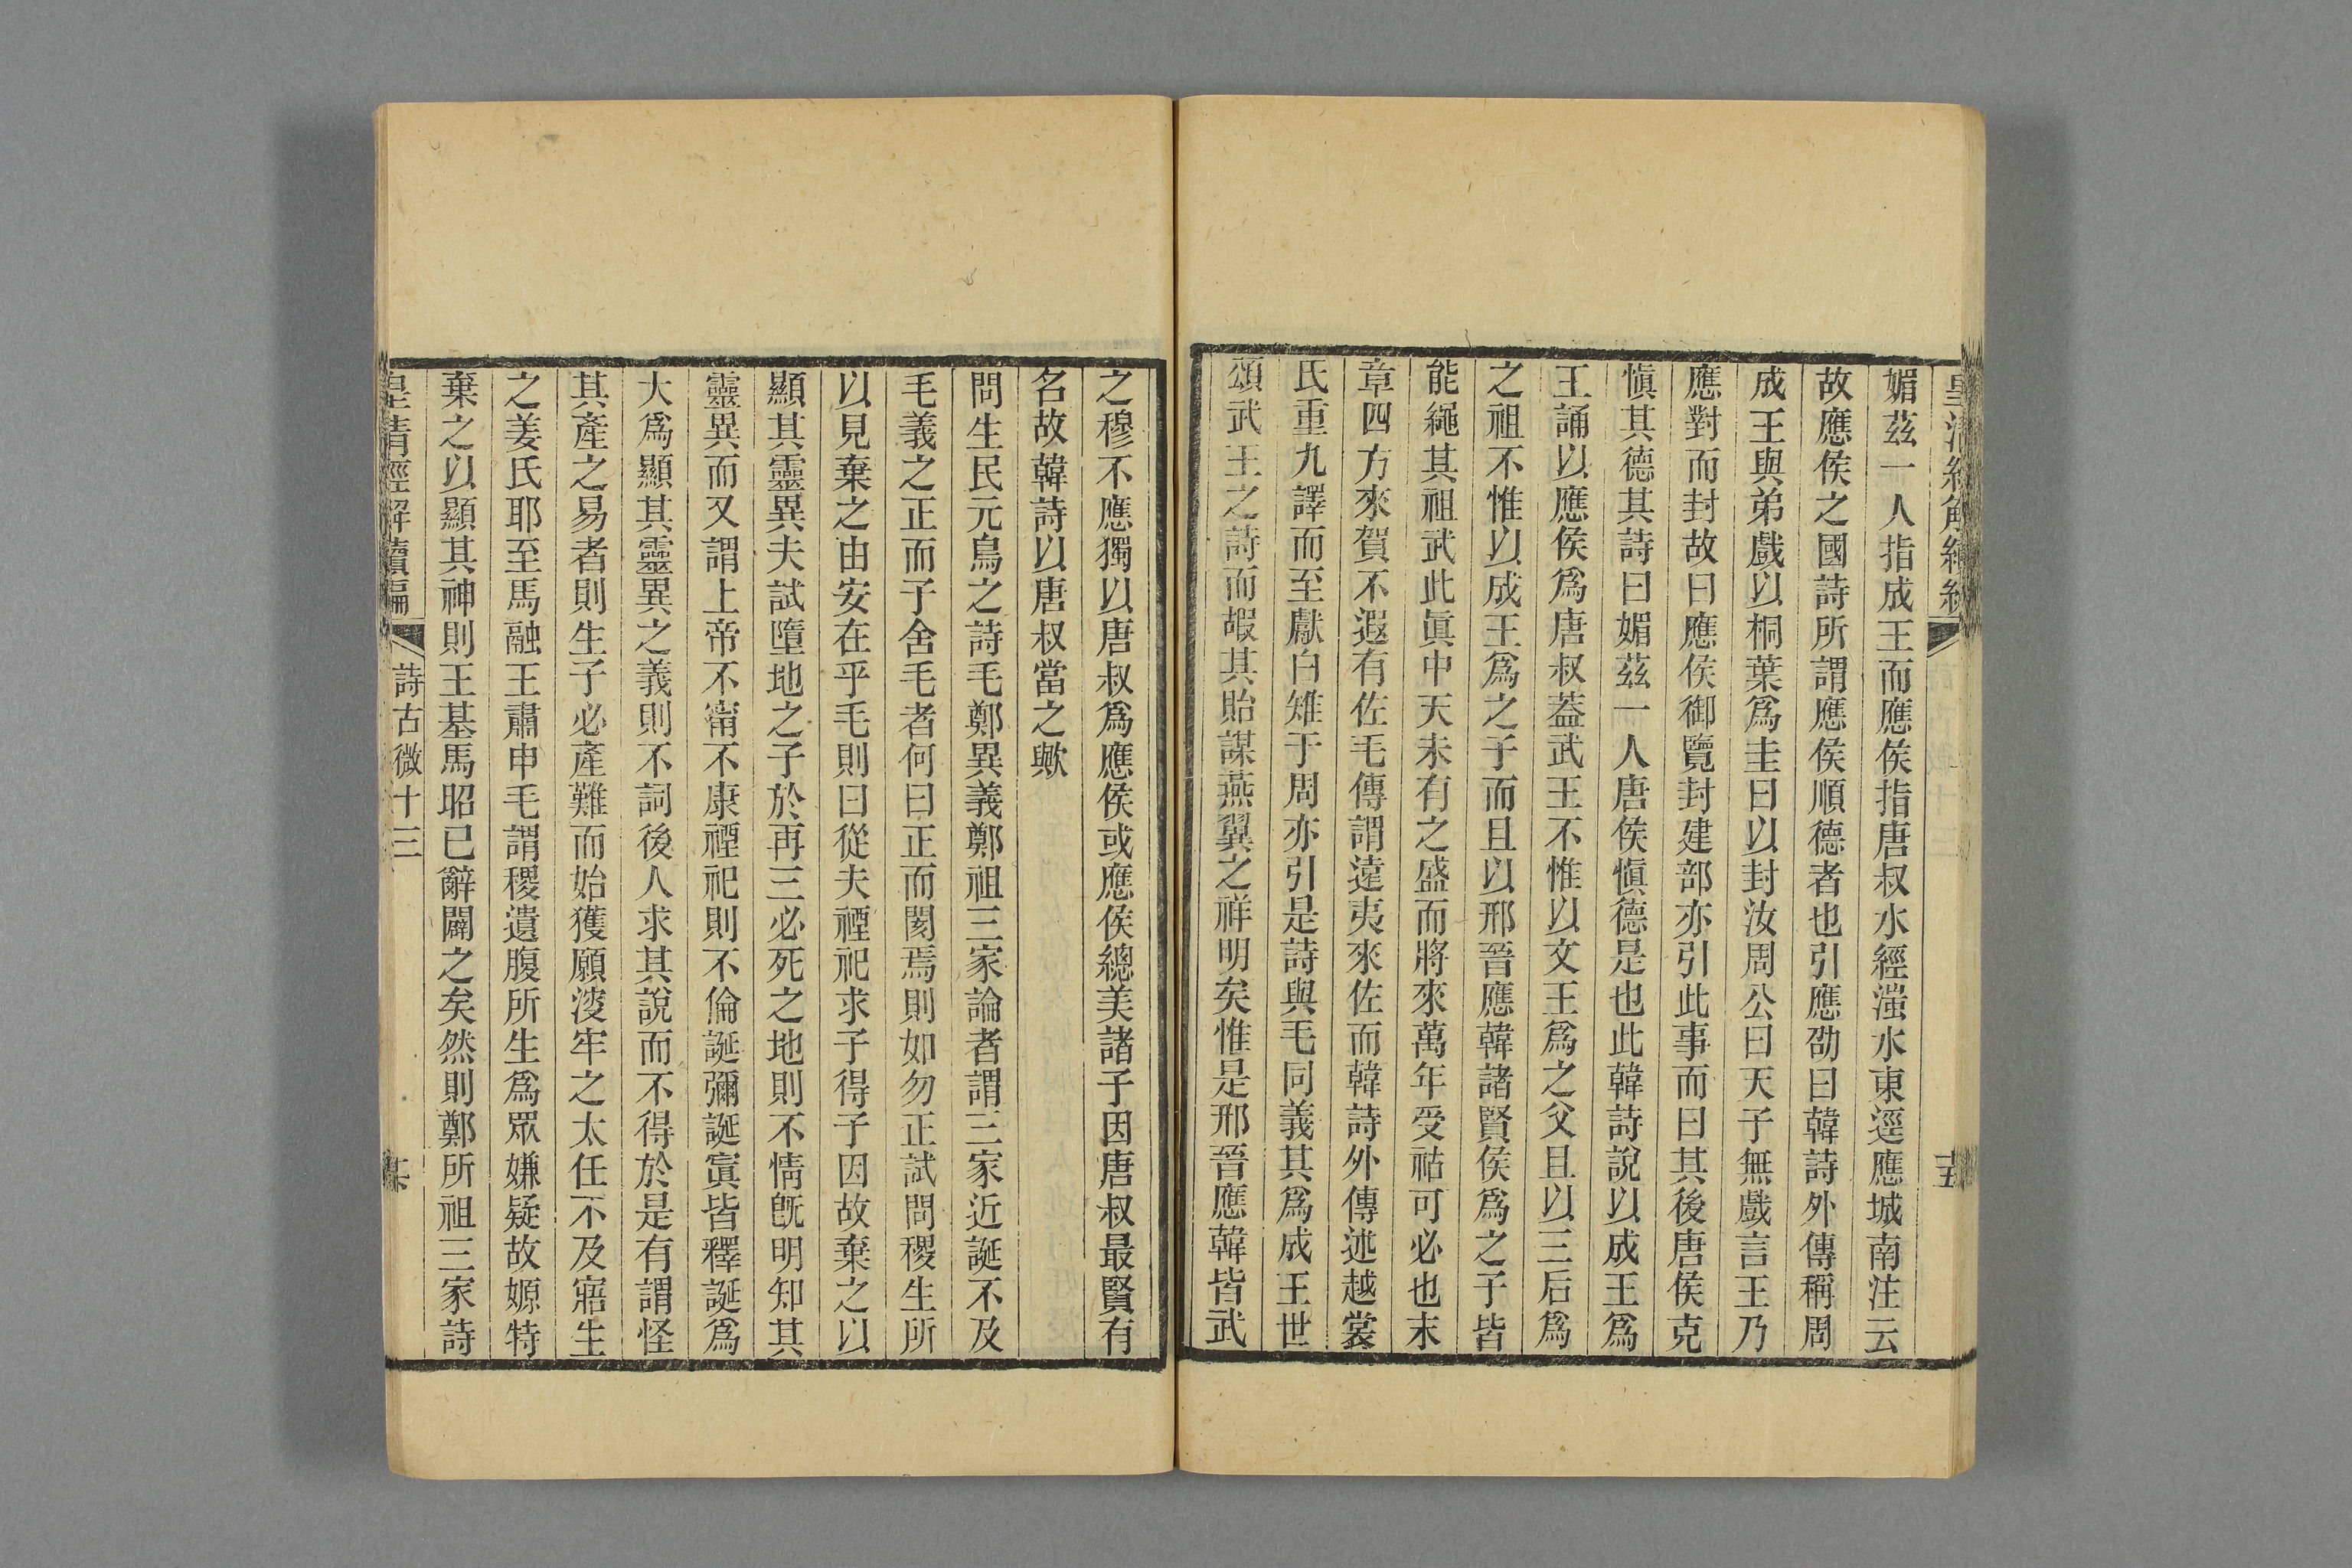 媚茲一人指成王而應侯指唐叔水經滍水東逕應城南注云
故應侯之國詩所謂應侯順德者也引應劭曰韓詩外傳稱周
成王與弟戲以桐葉爲圭曰以封汝周公曰天子無戲言王乃
應對而封故曰應侯御覽封建部亦引此事而曰其後唐侯克
愼其德其詩曰媚茲一人唐侯愼德是也此韓詩說以成王爲
王誦以應侯爲唐叔蓋武王不惟以文王爲之父且以三后爲
之祖不惟以成王爲之子而且以邢晉應韓諸賢侯爲之子皆
能繩其祖武此眞中天未有之盛而將來萬年受祜可必也末
章四方來賀不遐有佐毛傳謂遠夷來佐而韓詩外傳述越裳
氏重九譯而至獻白雉于周亦引是詩與毛同義其爲成王世
頌武王之詩而嘏其貽謀燕翼之祥明矣惟是邢晉應韓皆武
之穆不應獨以唐叔爲應侯或應侯總美諸子因唐叔最賢有
名故韓詩以唐叔當之歟
問生民元鳥之詩毛鄭異義鄭祖三家論者謂三家近誕不及
毛義之正而子舍毛者何曰正而閡焉則如勿正試問稷生所
以見棄之由安在乎毛則曰從夫禋祀求子得子因故棄之以
顯其靈異夫試墮地之子於再三必死之地則不情旣明知其
靈異而又謂上帝不甯不康禋祀則不倫誕彌誕寘皆釋誕爲
大爲顯其靈異之義則不詞後人求其說而不得於是有謂怪
其產之易者則生子必產難而始獲願淩牢之太任不及寤生
之姜氏耶至馬融王肅申毛謂稷遺腹所生爲眾嫌疑故嫄特
棄之以顯其神則王基馬昭已辭闢之矣然則鄭所祖三家詩
皇清經解續編
詩古微十三